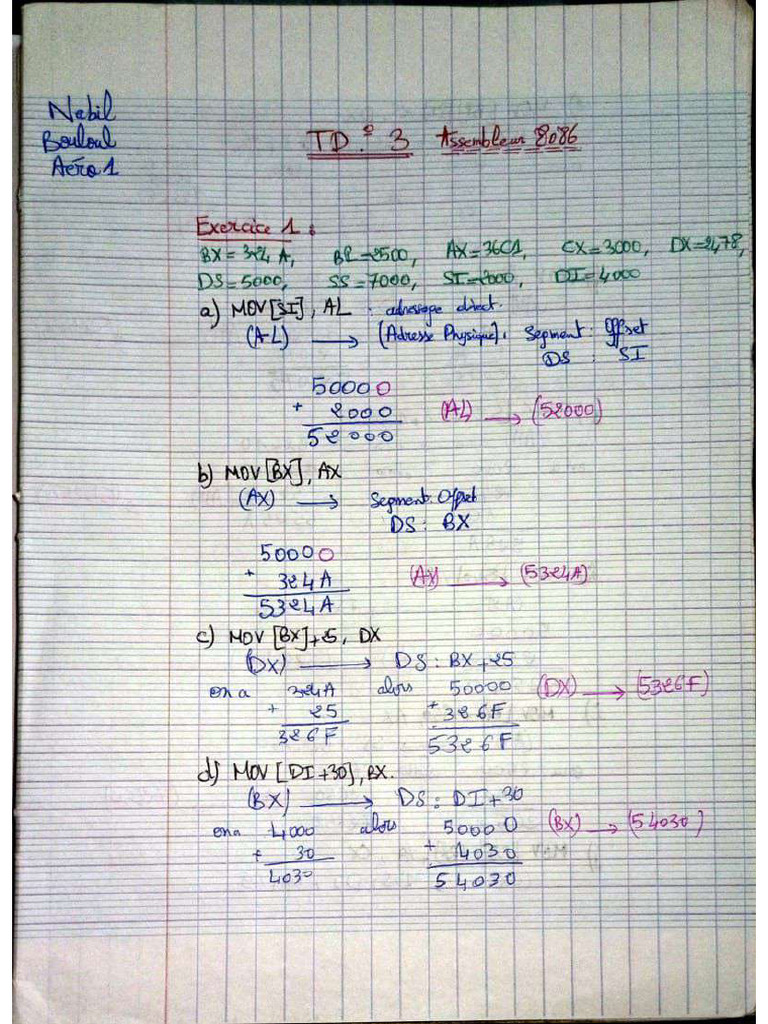 Nabil
Bouloul
Aéro 1
TD n° 3 Assembleur 8086
Exercice 1 :
BX = 324A, BP = 2500, AX = 36C1, CX = 3000, DX = 2478,
DS = 5000, SS = 7000, SI = 2000, DI = 4000
a) MOV [SI], AL : adressage direct.
(AL) → (Adresse Physique), Segment : Offset
DS : SI
50000
+ 2000
52000
(AL) → (52000)
b) MOV [BX], AX
(AX) → Segment : Offset
DS : BX
50000
+ 324A
5324A
(AX) → (5324A)
c) MOV [BX]+25, DX
(DX) → DS : BX+25
on a 324A alors 50000 (DX) → (5326F)
+ 25 + 326F
326F 5326F
d) MOV [DI+30], BX.
(BX) → DS : DI+30
on a 4000 alors 50000 (BX) → (54030)
+ 30 + 4030
4030 54030